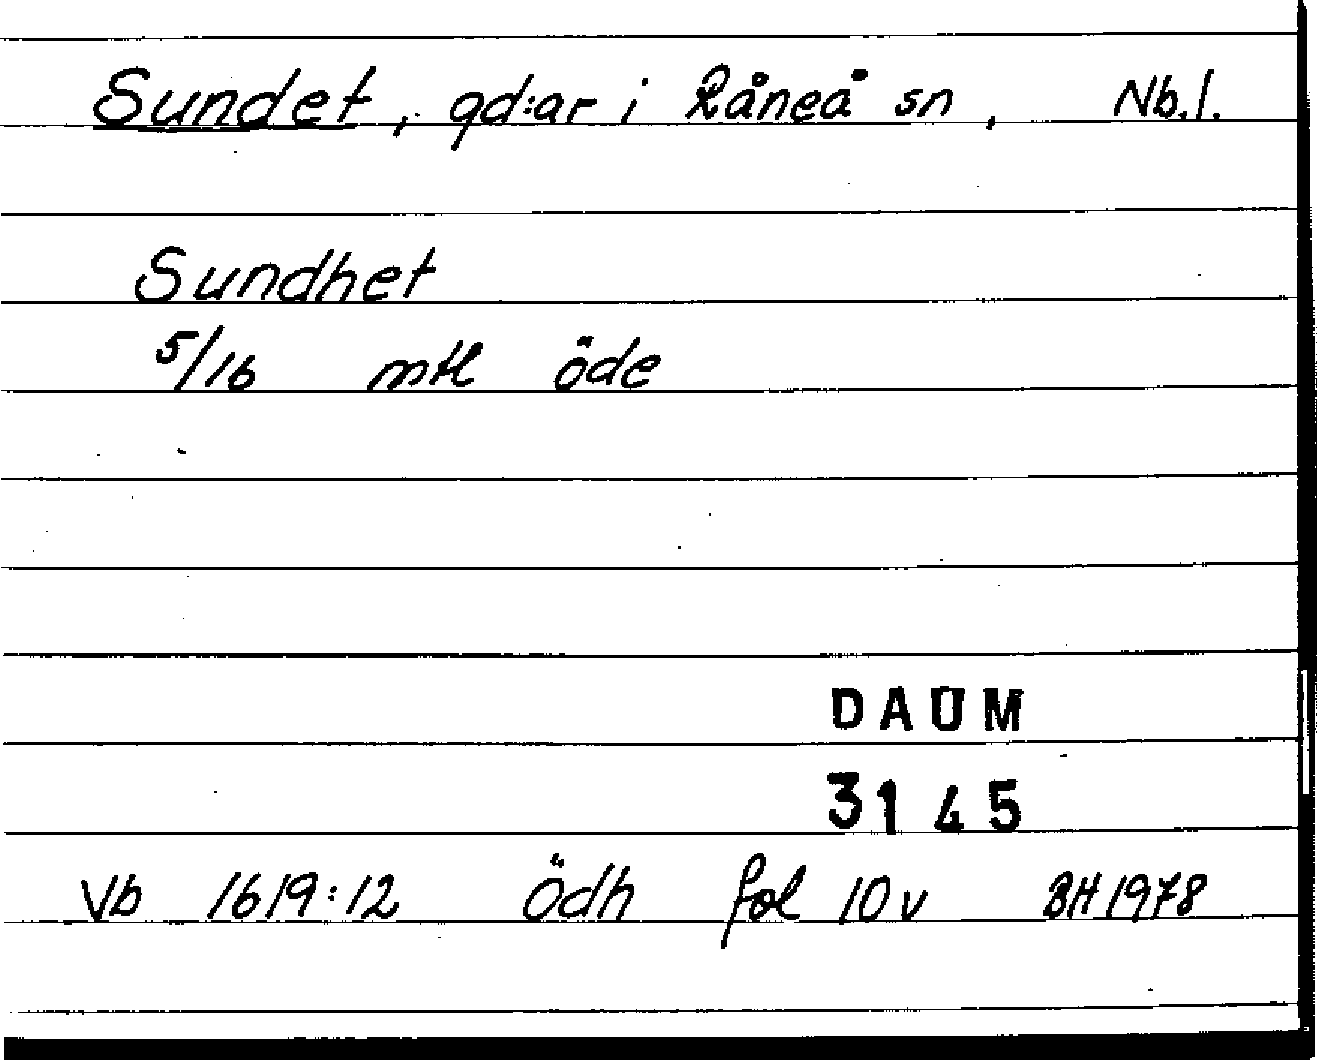 Sundet, gd:ar i Råneå sn, Nb.l.
Sundhet
5/16 mtl öde
DAUM
3145
Vb 1619:12 Ödh fol 10v BH 1978